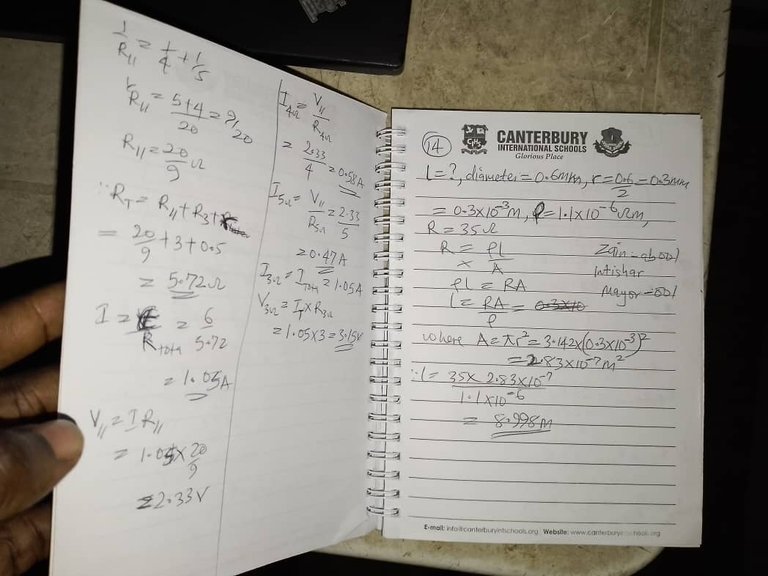 1/R11 = 1/4 + 1/5
1/R11 = 5+4/20 = 9/20
R11 = 20/9 Ω
∵ RT = R11 + R3 +
= 20/9 + 3 + 0.5
= 5.72Ω
I = E/Rtotal = 6/5.72
= 1.05A
V11 = I R11
= 1.05 x 20/9
= 2.33V
I4Ω = V11/R4Ω
= 2.33/4 = 0.58A
I5Ω = V11/R5Ω = 2.33/5
= 0.47A
I3Ω = Itotal = 1.05A
V3Ω = IT x R3Ω
= 1.05 x 3 = 3.15V
14
CANTERBURY
INTERNATIONAL SCHOOLS
Glorious Place
l = ?, diameter = 0.6mm, r = 0.6/2 = 0.3mm
= 0.3x10⁻³m, ρ = 1.1x10⁻⁶Ωm,
R = 35Ω
R = ρl/A
ρl = RA
l = RA/ρ = 0.3x10
where A = πr² = 3.142x(0.3x10⁻³)²
= 2.83x10⁻⁷m²
∵ l = 35 x 2.83x10⁻⁷/1.1x10⁻⁶
= 8.998m
Intishar
E-mail: info@canterburyintschools.org, Website: